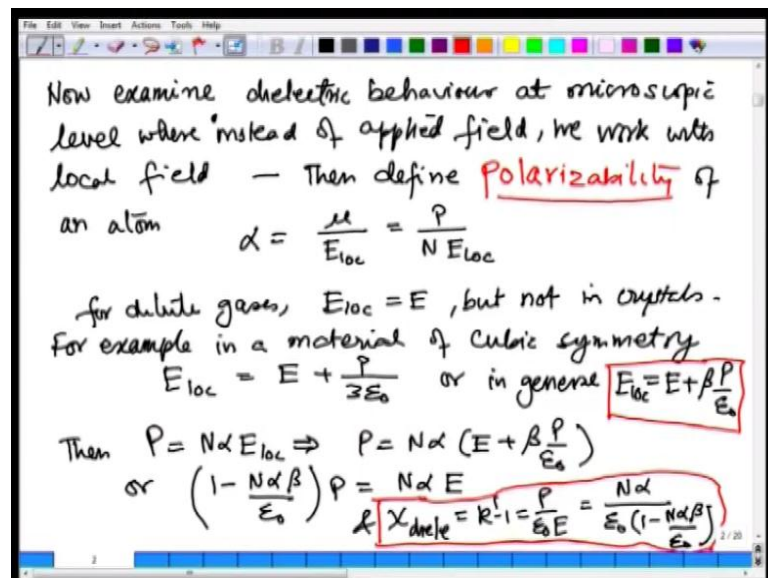 File Edit View Insert Actions Tools Help
Now examine dielectric behaviour at microscopic
level where instead of applied field, we work with
local field — Then define Polarizability of
an atom α = μ / E_loc = P / (N E_loc)
for dilute gases, E_loc = E , but not in crystals.
For example in a material of cubic symmetry
E_loc = E + P / (3ε₀) or in general E_loc = E + β P / ε₀
Then P = Nα E_loc ⇒ P = Nα (E + β P / ε₀)
or (1 - Nαβ / ε₀) P = Nα E
& χ_diele = k' - 1 = P / (ε₀E) = Nα / (ε₀ (1 - Nαβ / ε₀))
2 / 20
2